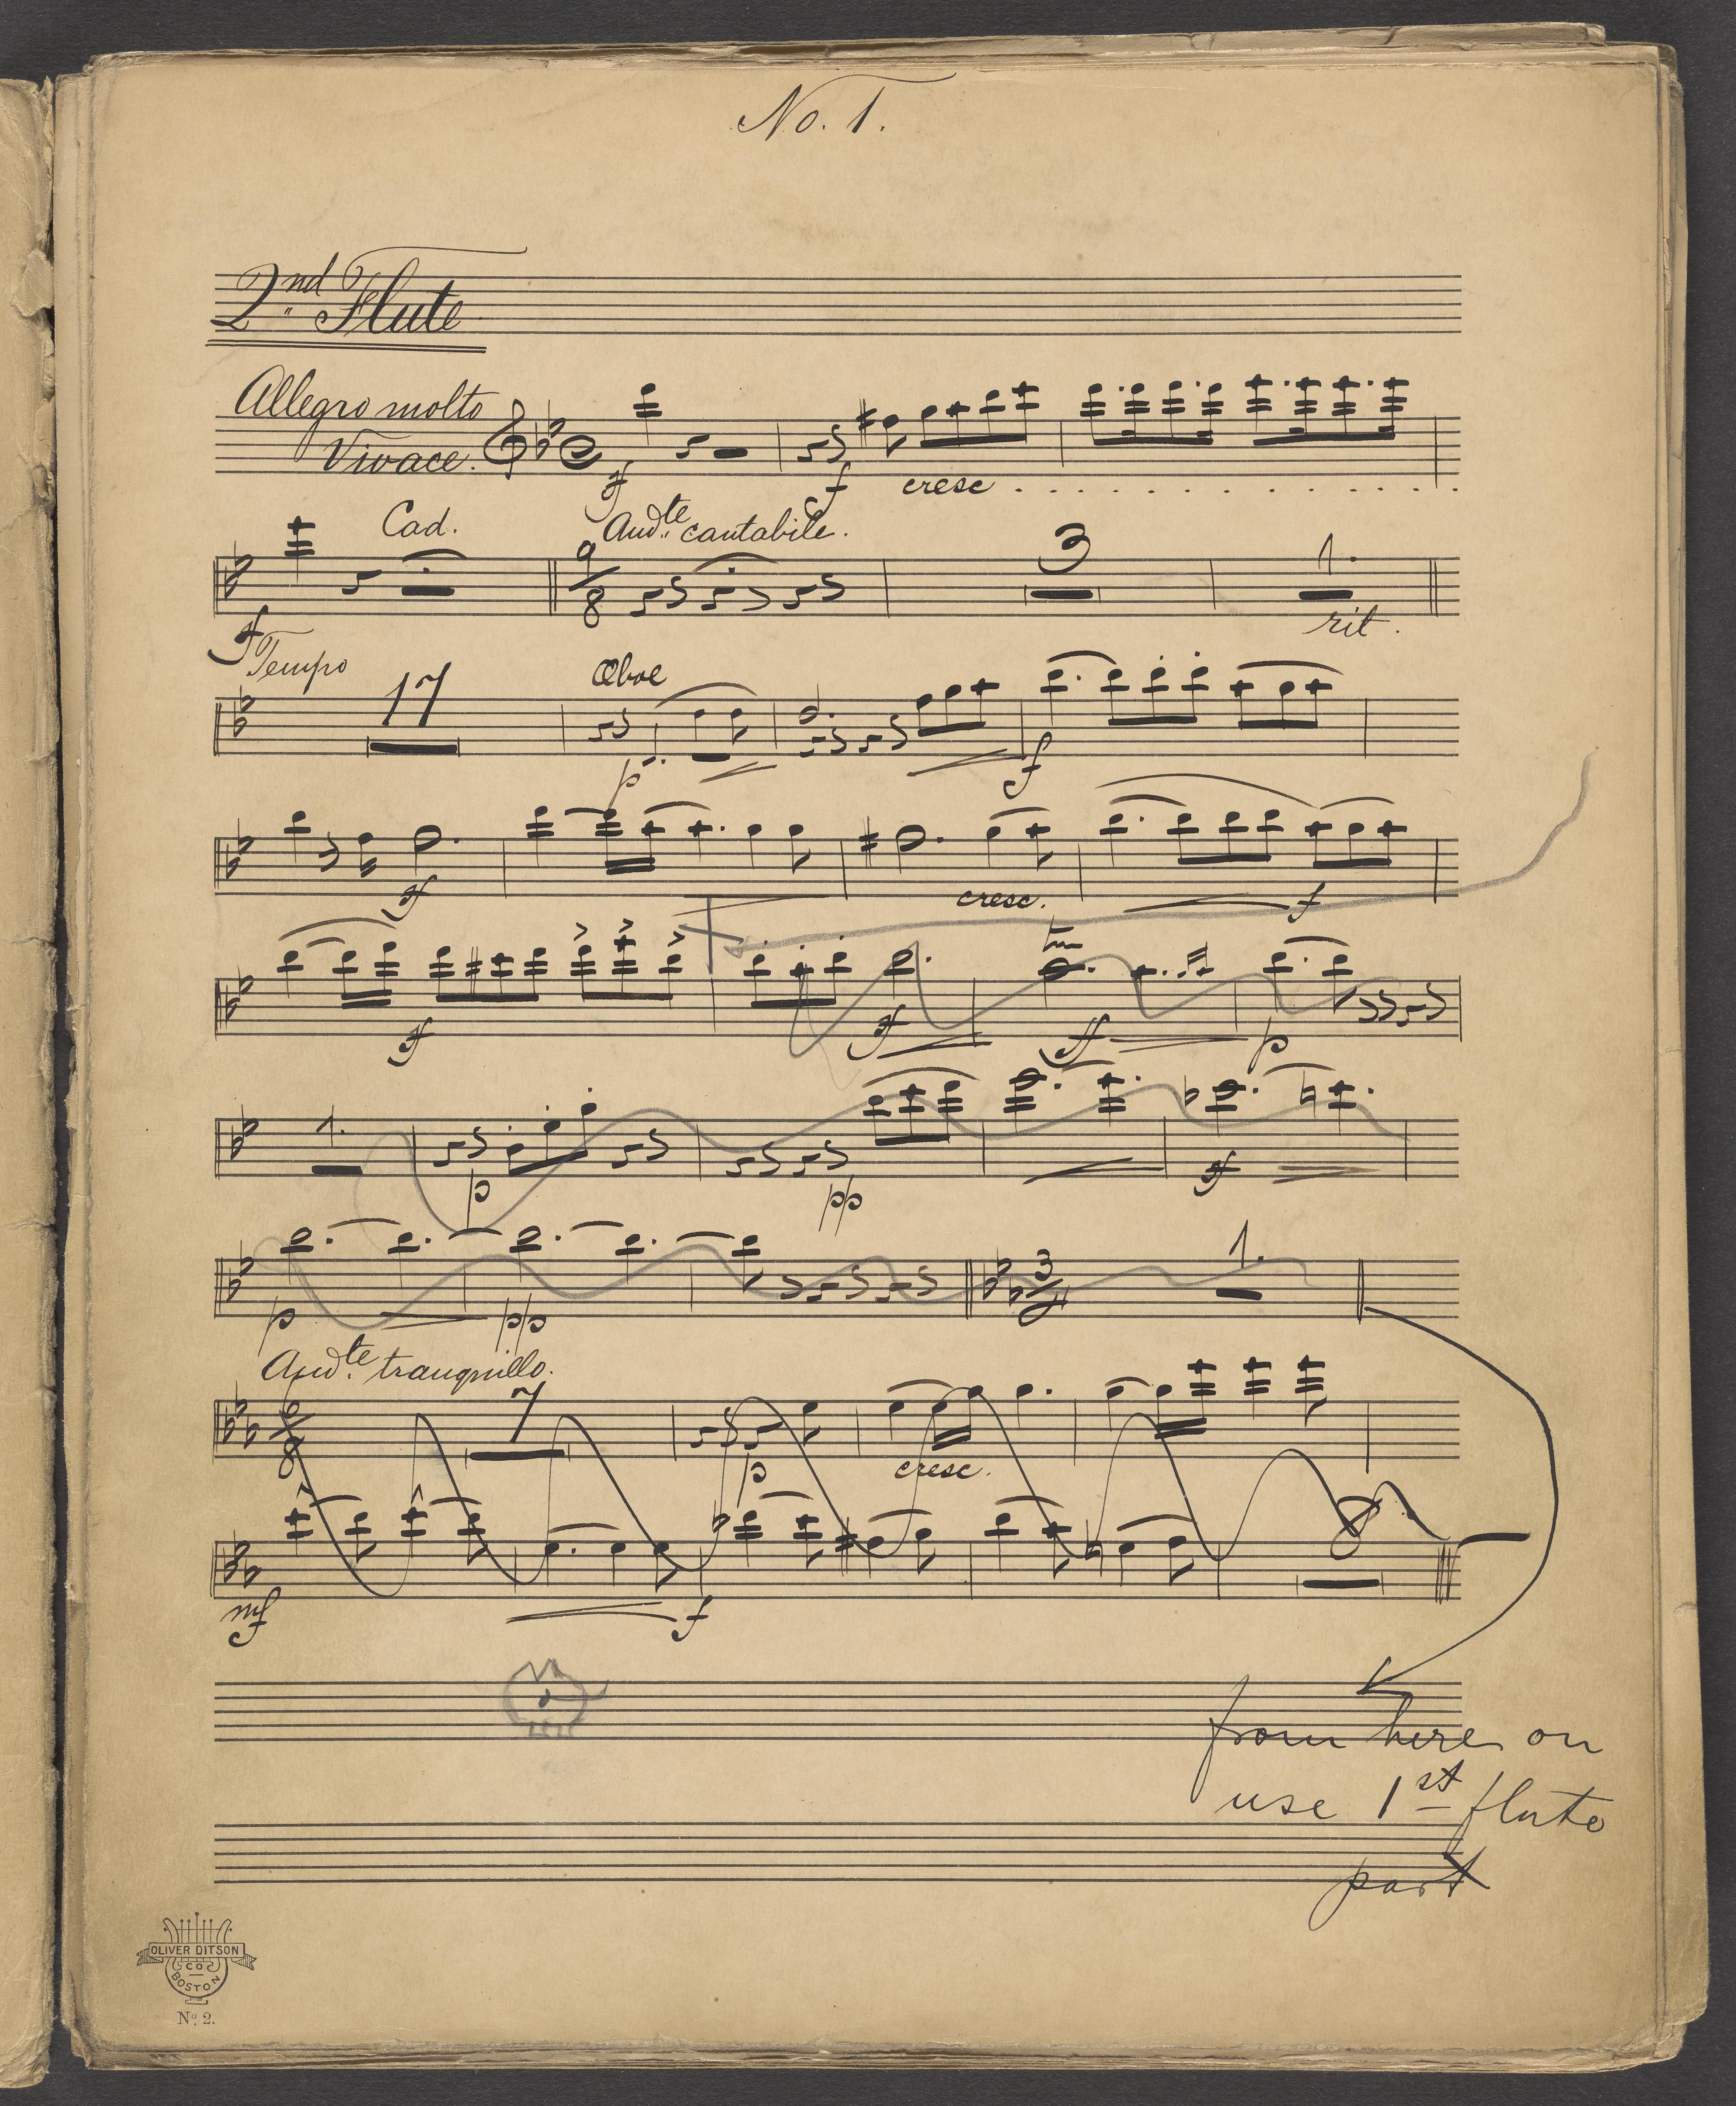 No. 1.
2nd Flute
Allegro molto
Vivace.
sf f cresc . . . . . . . . . . . .
Cad. Andte cantabile.
9 3 1.
8
sf rit.
Tempo 17 Oboe
p f
sf cresc. f
tr
sf sf ff p
1.
p pp sf
3 1.
4
p pp
Andte tranquillo.
6 7
8
p cresc.
8
mf f
from here on
use 1st flute
part
OLIVER DITSON
CO
BOSTON
No. 2.